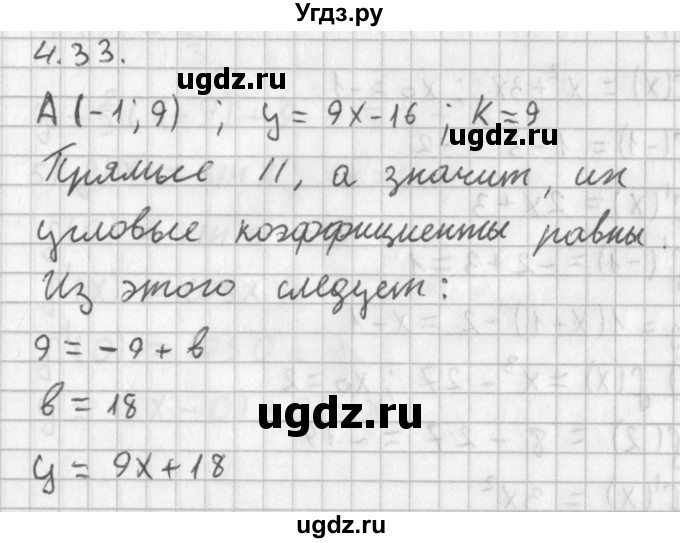 Угдз.ру
4.33.
ugdz.ru
A (-1; 9) ; y = 9x-16 ; K=9
ugdz.ru
Прямые ||, а значит, их
угловые коэффициенты равны.
Из этого следует:
9 = -9 + в
в = 18
ugdz.ru
y = 9x+18
ugdz.ru